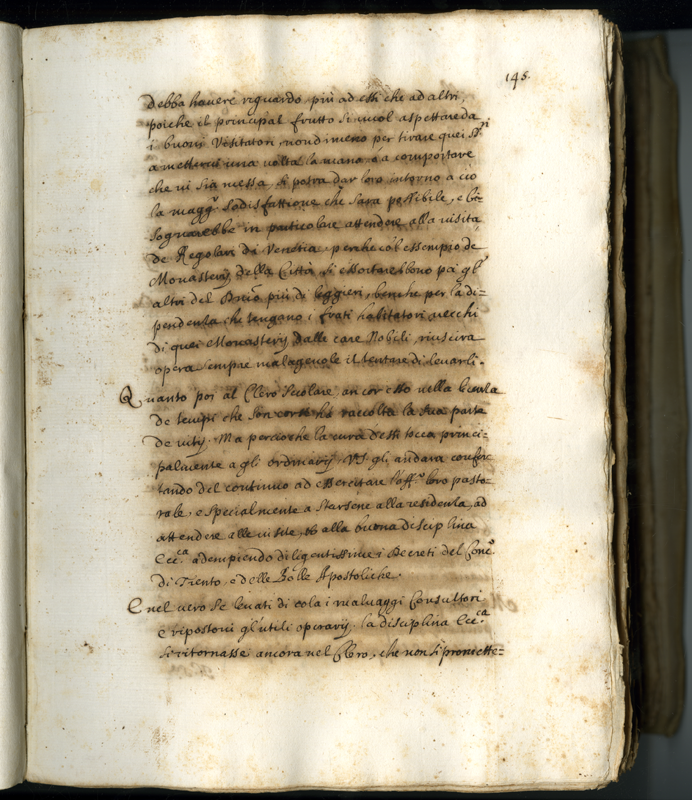 145.
debba havere riguardo più ad essi che ad altri,
poiche il principal frutto si vuol aspettare da
i buoni Visitatori, nondimeno per tirare quei SSri
a mettervi una volta la mano, ò a comportare
che vi sia messa, si potrà dar loro intorno a ciò
la maggr sodisfattione che sarà possibile, e bi-
sognarebbe in particolare attendere alla visita
de Regolari di Venetia, perche cõl essempio de
Monasterij della Città si essortarebbono poi gl'
altri del Dnio più di leggieri, benche per la di=
pendenza che tengano i frati habitatori vecchi
di quei Monasterij dalle case Nobili, riuscirà
opera sempre malagevole il tentare di levarli.
Quanto poi al Clero secolare, ancor esso nella licenza
de tempi che son corsi hà raccolta la sua parte
de vitij. Ma percioche la cura d'essi tocca princi=
palmente a gli ordinarij, VS. gl' andarà confor
tando del continuo ad essercitare l'affo loro pasto=
rale, e specialmente a starsene alla residenza, ad
attendere alle visite, et alla buona disciplina
Ecc.ca adempiendo diligentissime i Decreti del Conc.o
di Trento, e delle Bolle Apostoliche.
E nel vero se levati di colà i malvaggi Consultori
e ripostovi gl'utili operarij, la disciplina Ecc.ca
si ritornasse ancora nel Clero, che non si promette=